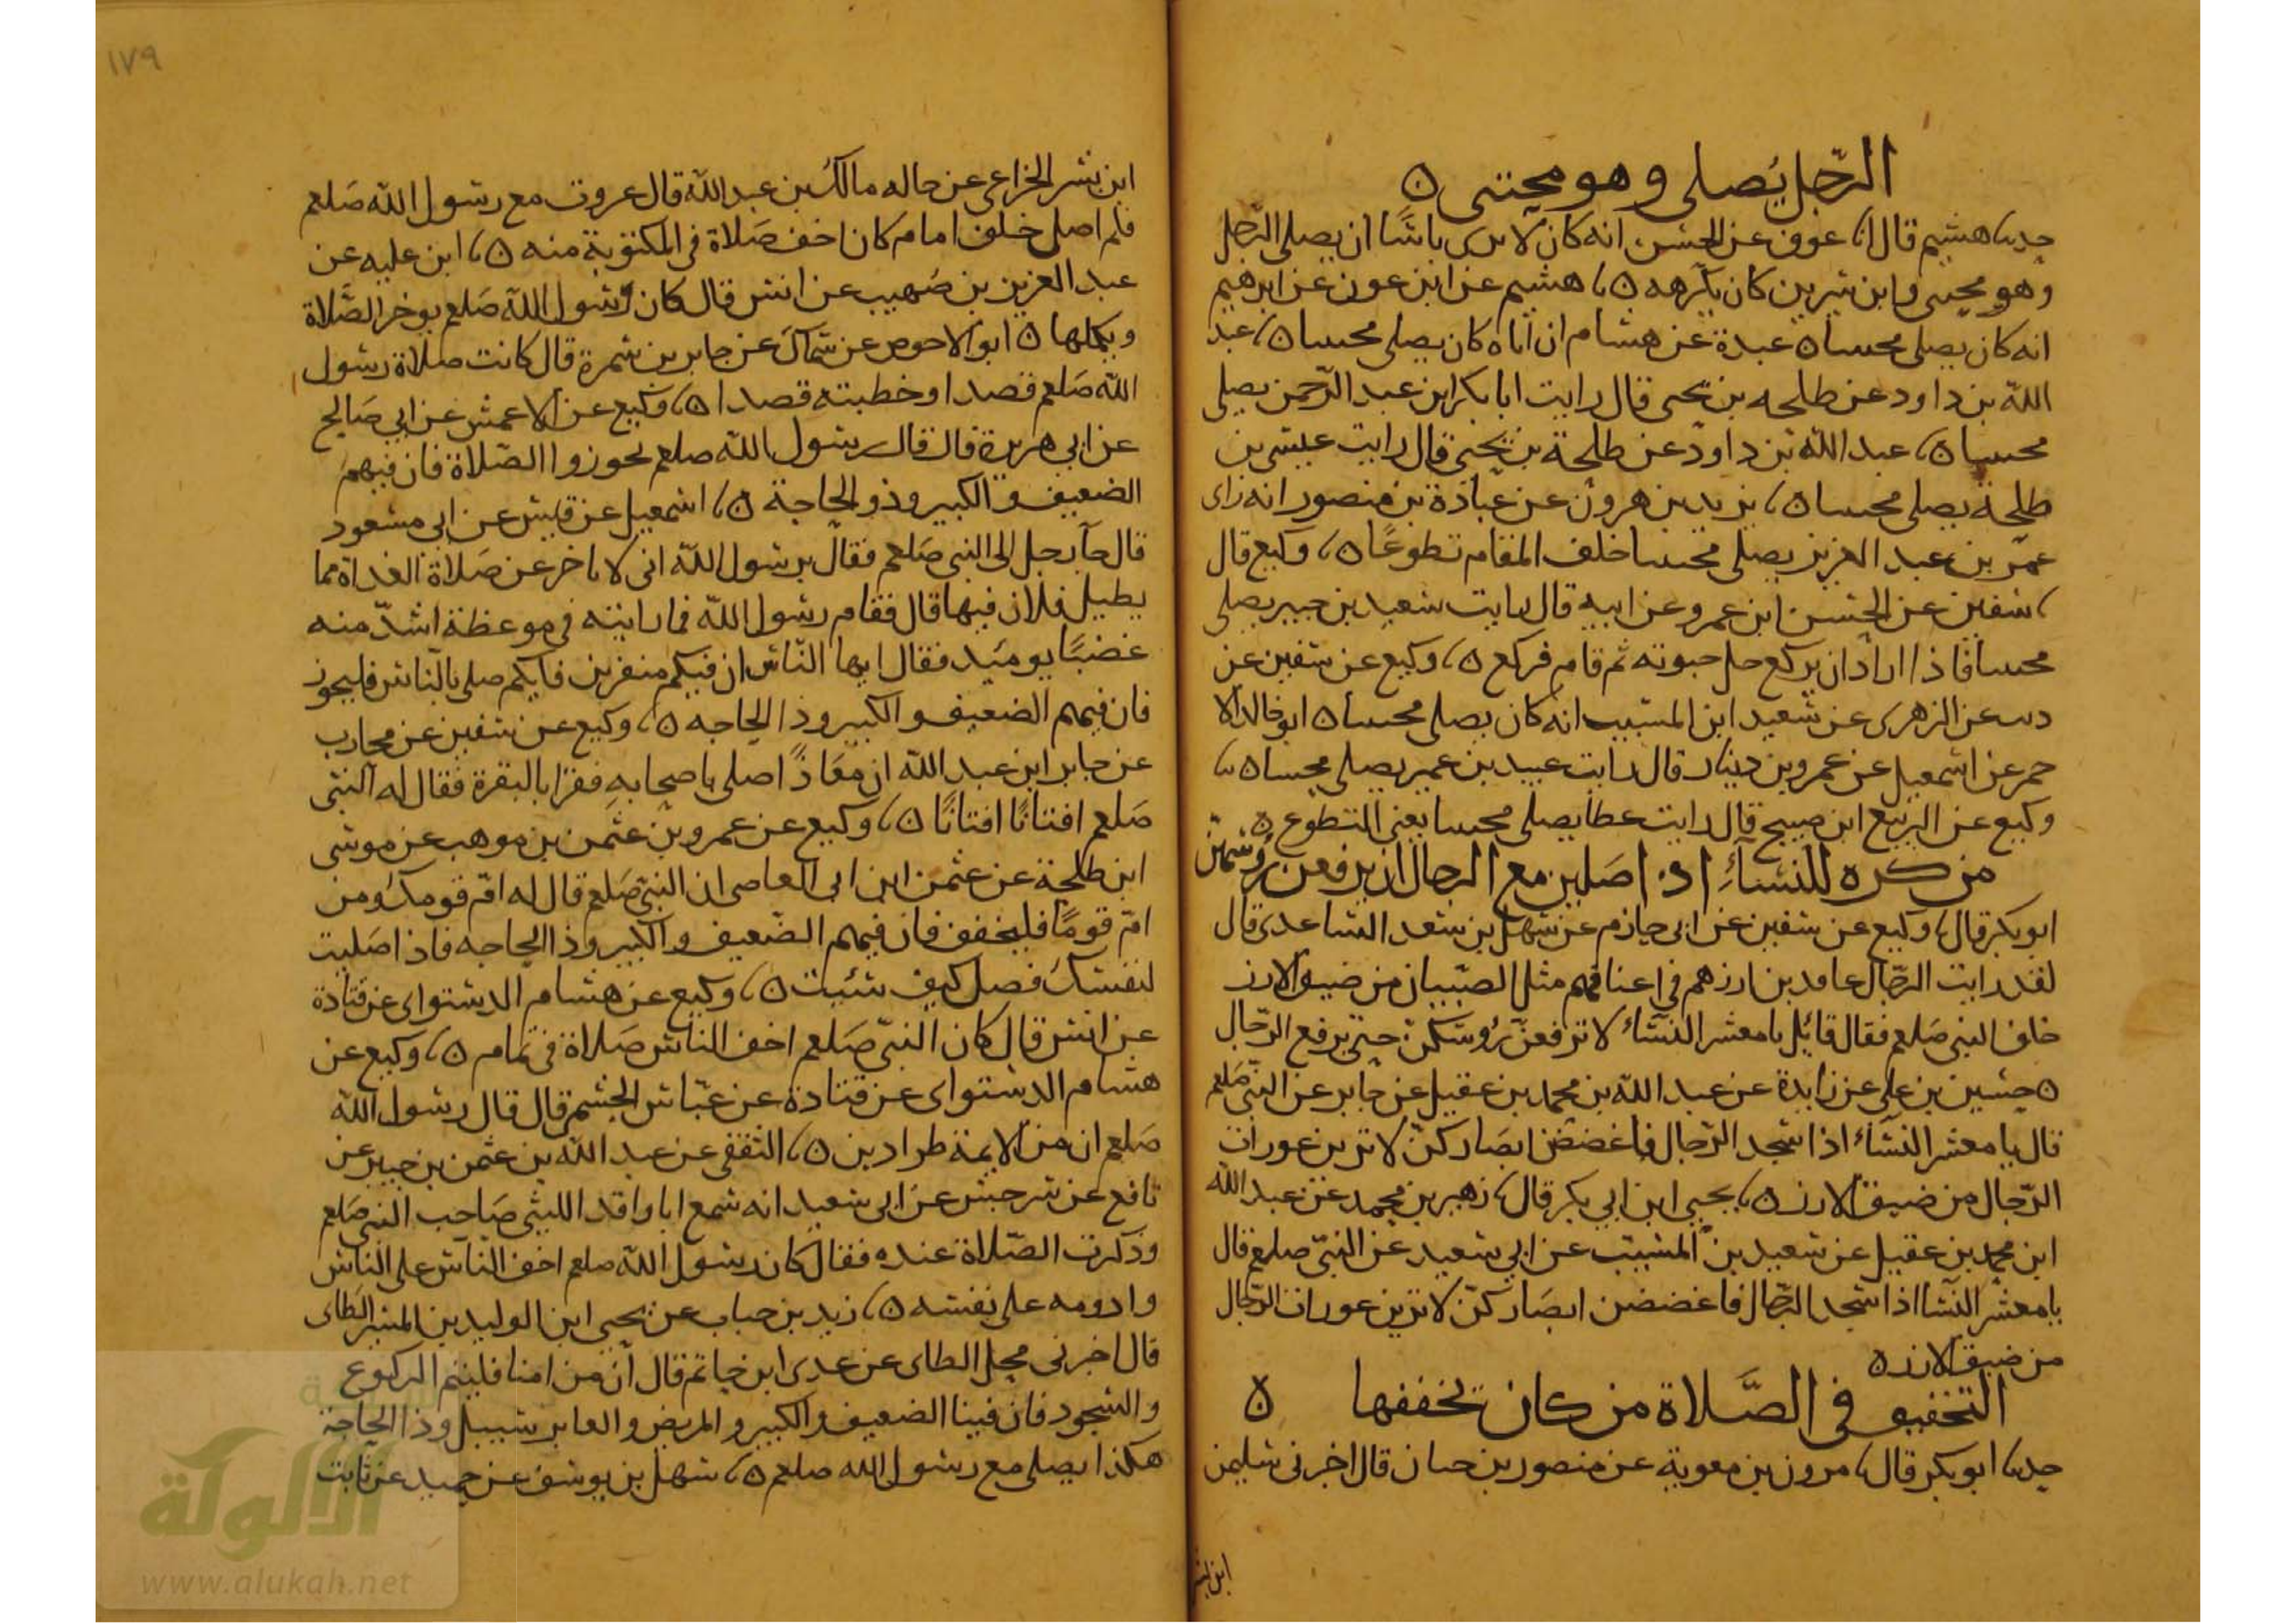 الرجل يصلي وهو محتبي ٥
حدثنا هشيم قال انا عوف عن الحسن انه كان لا يرى باسًا ان يصلي الرجل
وهو محتبي وابن سيرين كان يكرهه ٥ نا هشيم عن ابن عون عن ابرهيم
انه كان يصلي محتبيا ٥ عبدة عن هشام ان اباه كان يصلي محتبيا ٥ نا عبد
الله بن داود عن طلحه بن يحيى قال رايت ابا بكر ابن عبد الرحمن يصلي
محتبيا ٥ نا عبد الله بن داود عن طلحة بن يحيى قال رايت عيسى بن
طلحة يصلي محتبيا ٥ نا يزيد بن هرون عن عبادة بن منصور انه راى
عمر بن عبد العزيز يصلي محتبيا خلف المقام تطوعًا ٥ نا وكيع قال
نا سفين عن الحسن ابن عمرو عن ابيه قال رايت سعيد بن جبير يصلي
محتبيا فاذا اراد ان يركع حل حبوته ثم قام فركع ٥ نا وكيع عن سفين عن
عن الزهرى عن سعيد ابن المسيب انه كان يصلي محتبيا ٥ ابو خالد الا
حمر عن اسمعيل عن عمرو بن دينار قال رايت عبيد بن عمير يصلي محتبيا ٥ نا
وكيع عن الربيع ابن صبيح قال رايت عطا يصلي محتبيا يعني التطوع ٥
من كره للنساء اذا صلين مع الرجال ان يرفعن رؤسهن
ابو بكر قال نا وكيع عن سفين عن ابي حازم عن سهل بن سعد الساعدى قال
لقد رايت الرجال عاقدين ازرهم في اعناقهم مثل الصبيان من ضيق الازر
خلف النبي صلعم فقال قائل يا معشر النساء لا ترفعن رؤسكن حتى يرفع الرجال
٥ حسين بن علي عن زايدة عن عبد الله بن محمد بن عقيل عن جابر عن النبي صلعم
قال يا معشر النساء اذا سجد الرجال فاغضضن ابصاركن لا ترين عورات
الرجال من ضيق الازر ٥ نا يحيى ابن ابي بكر قال نا زهير بن محمد عن عبد الله
ابن محمد بن عقيل عن سعيد بن المسيب عن ابي سعيد عن النبي صلعم قال
يا معشر النسا اذا سجد الرجال فاغضضن ابصاركن لا ترين عورات الرجال
من ضيق الازر ٥
التخفيف في الصلاة من كان يخففها ٥
حدثنا ابو بكر قال نا مرون بن معوية عن منصور بن حيان قال اخبرني سليمن
ابن بشر
١٧٩
ابن بشر الخزاعي عن خاله مالك بن عبد الله قال غزوت مع رسول الله صلعم
فلم اصل خلف امام كان اخف صلاة في المكتوبة منه ٥ نا ابن عليه عن
عبد العزيز بن صهيب عن انس قال كان رسول الله صلعم يوخر الصلاة
ويكملها ٥ ابو الاحوص عن سماك عن جابر بن سمرة قال كانت صلاة رسول
الله صلعم قصدا وخطبته قصدا ٥ نا وكيع عن الاعمش عن ابي صالح
عن ابي هريرة قال قال رسول الله صلعم تجوزوا الصلاة فان فيهم
الضعيف والكبير وذو الحاجة ٥ نا اسمعيل عن قيس عن ابي مسعود
قال جآ رجل الى النبي صلعم فقال يرسول الله اني لا تاخر عن صلاة الغداة مما
يطيل فلان فيها قال فقام رسول الله فما رايته في موعظة اشد منه
غضبًا يومئيد فقال ايها الناس ان فيكم منفرين فايكم صلى بالناس فليجوز
فان فيهم الضعيف والكبير وذا الحاجه ٥ نا وكيع عن سفين عن محارب
عن جابر ابن عبد الله ان معاذًا صلى باصحابه فقرا بالبقرة فقال له النبي
صلعم افتانًا افتانًا ٥ نا وكيع عن عمرو بن عثمن بن موهب عن موسى
ابن طلحة عن عثمن ابن ابي العاصى ان النبي صلعم قال له ام قومك ومن
ام قومًا فليخفف فان فيهم الضعيف والكبير وذا الحاجه فاذا صليت
لنفسك فصل كيف شئيت ٥ نا وكيع عن هشام الدستواى عن قتادة
عن انس قال كان النبي صلعم اخف الناس صلاة في تمام ٥ نا وكيع عن
هشام الدستواى عن قتادة عن عباس الجشم قال قال رسول الله
صلعم ان من الايمة طرادين ٥ نا الثقفي عن عبد الله بن عثمن بن جبير عن
نافع عن سرجس عن ابي سعيد انه سمع ابا واقد الليثي صاحب النبي صلعم
وذكرت الصلاة عنده فقال كان رسول الله صلعم اخف الناس على الناس
وادومه على نفسه ٥ نا زيد بن حباب عن يحيى ابن الوليد بن المسير الطاى
قال اخبرني محل الطاى عن عدى ابن حاتم قال ان من امنا فليتم الركوع
والسجود فان فينا الضعيف والكبير والمريض والعابر سبيل وذا الحاجة
هكذا يصلي مع رسول الله صلعم ٥ نا سهل بن يوسف عن حميد عن ثابت
الألوكة
www.alukah.net